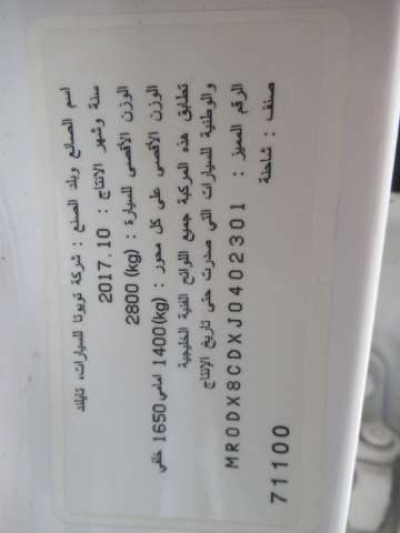 اسم الصانع وبلد الصنع : شركة تويوتا للسيارات، تايلاند
سنة وشهر الانتاج : 2017.10
الوزن الأقصى للسيارة : 2800 (kg)
الوزن الأقصى على كل محور : 1400(kg) امامي 1650 خلفي
تطابق هذه المركبة جميع اللوائح الفنية الخليجية
والوطنية للسيارات التي صدرت حتى تاريخ الإنتاج
الرقم المميز : MR0DX8CDXJ0402301
صنف : شاحنة
71100